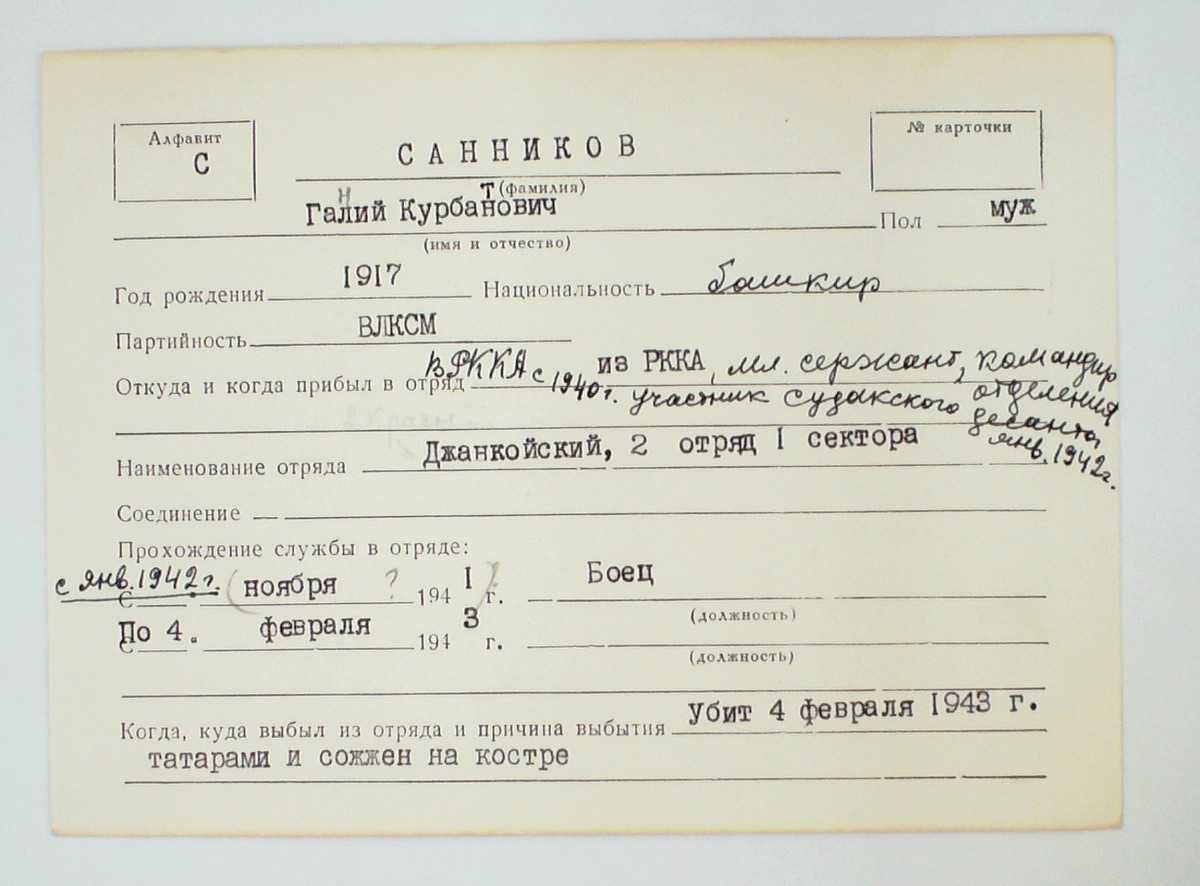 Алфавит
С
№ карточки
САННИКОВ
(фамилия)
Н Т
Галий Курбанович
Пол муж
(имя и отчество)
Год рождения 1917 Национальность башкир
Партийность ВЛКСМ
Откуда и когда прибыл в отряд в РККА с 1940г. из РККА, мл. сержант, командир отделения
участник судакского десанта янв. 1942г.
Наименование отряда Джанкойский, 2 отряд I сектора
Соединение
Прохождение службы в отряде:
с янв. 1942г. (ноября ? 194I г.) Боец
(должность)
По 4. февраля 1943 г.
(должность)
Когда, куда выбыл из отряда и причина выбытия Убит 4 февраля 1943 г.
татарами и сожжен на костре